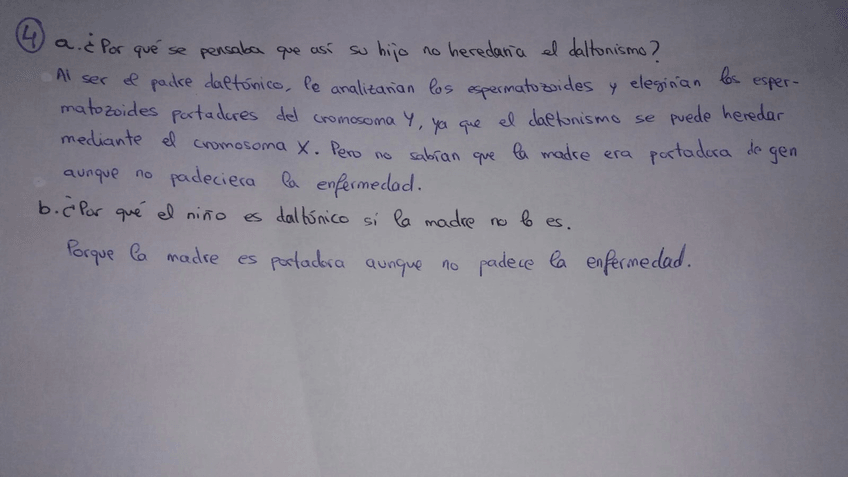 4 a. ¿Por qué se pensaba que así su hijo no heredaría el daltonismo?
Al ser el padre daltónico, le analizarían los espermatozoides y elegirían los esper-
matozoides portadores del cromosoma Y, ya que el daltonismo se puede heredar
mediante el cromosoma X. Pero no sabían que la madre era portadora de gen
aunque no padeciera la enfermedad.
b. ¿Por qué el niño es daltónico si la madre no lo es.
Porque la madre es portadora aunque no padece la enfermedad.